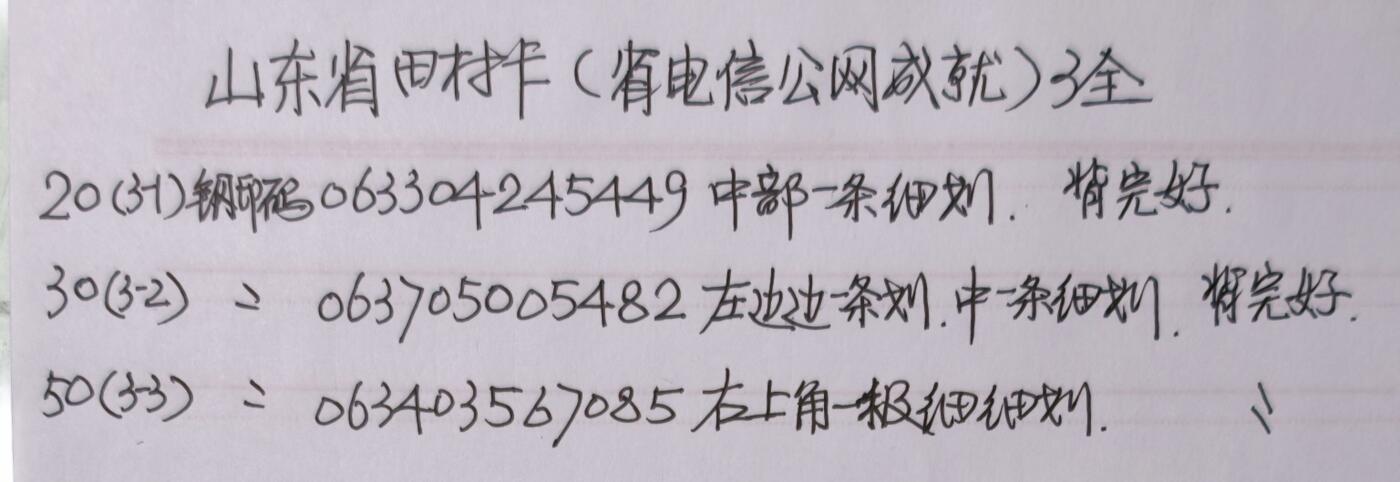 山东省田村卡(省电信公网成就)3全
20(3-1)钢印码063304245449中部一条细划.背完好.
30(3-2) 〃 063705005482左边边一条划.中一条细划.背完好.
50(3-3) 〃 063403567085右上角一极细细划. 〃